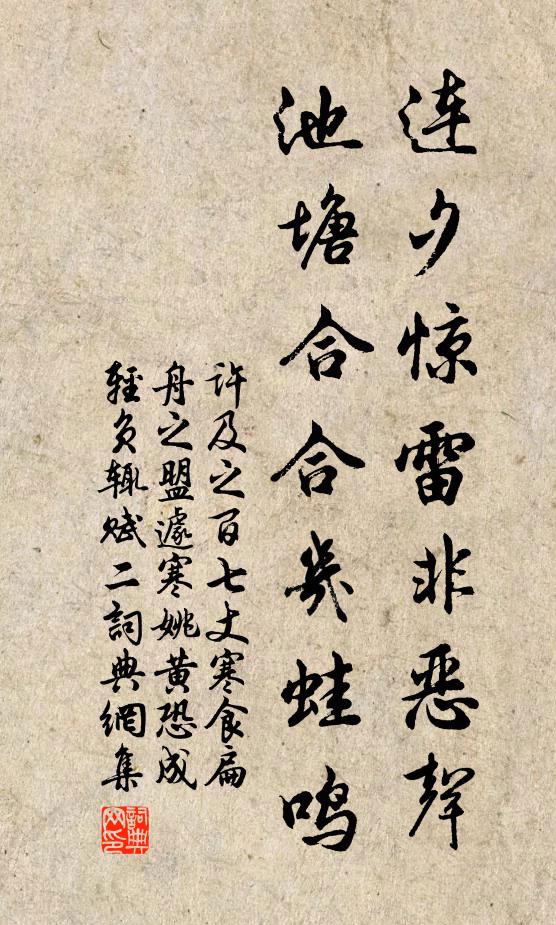 连夕惊雷非恶聲
池塘合合几蛙鸣
许及之百七丈寒食扁
舟之盟遽寒姚黄恐成
轻负辄赋二詞典網集
詞典
网印